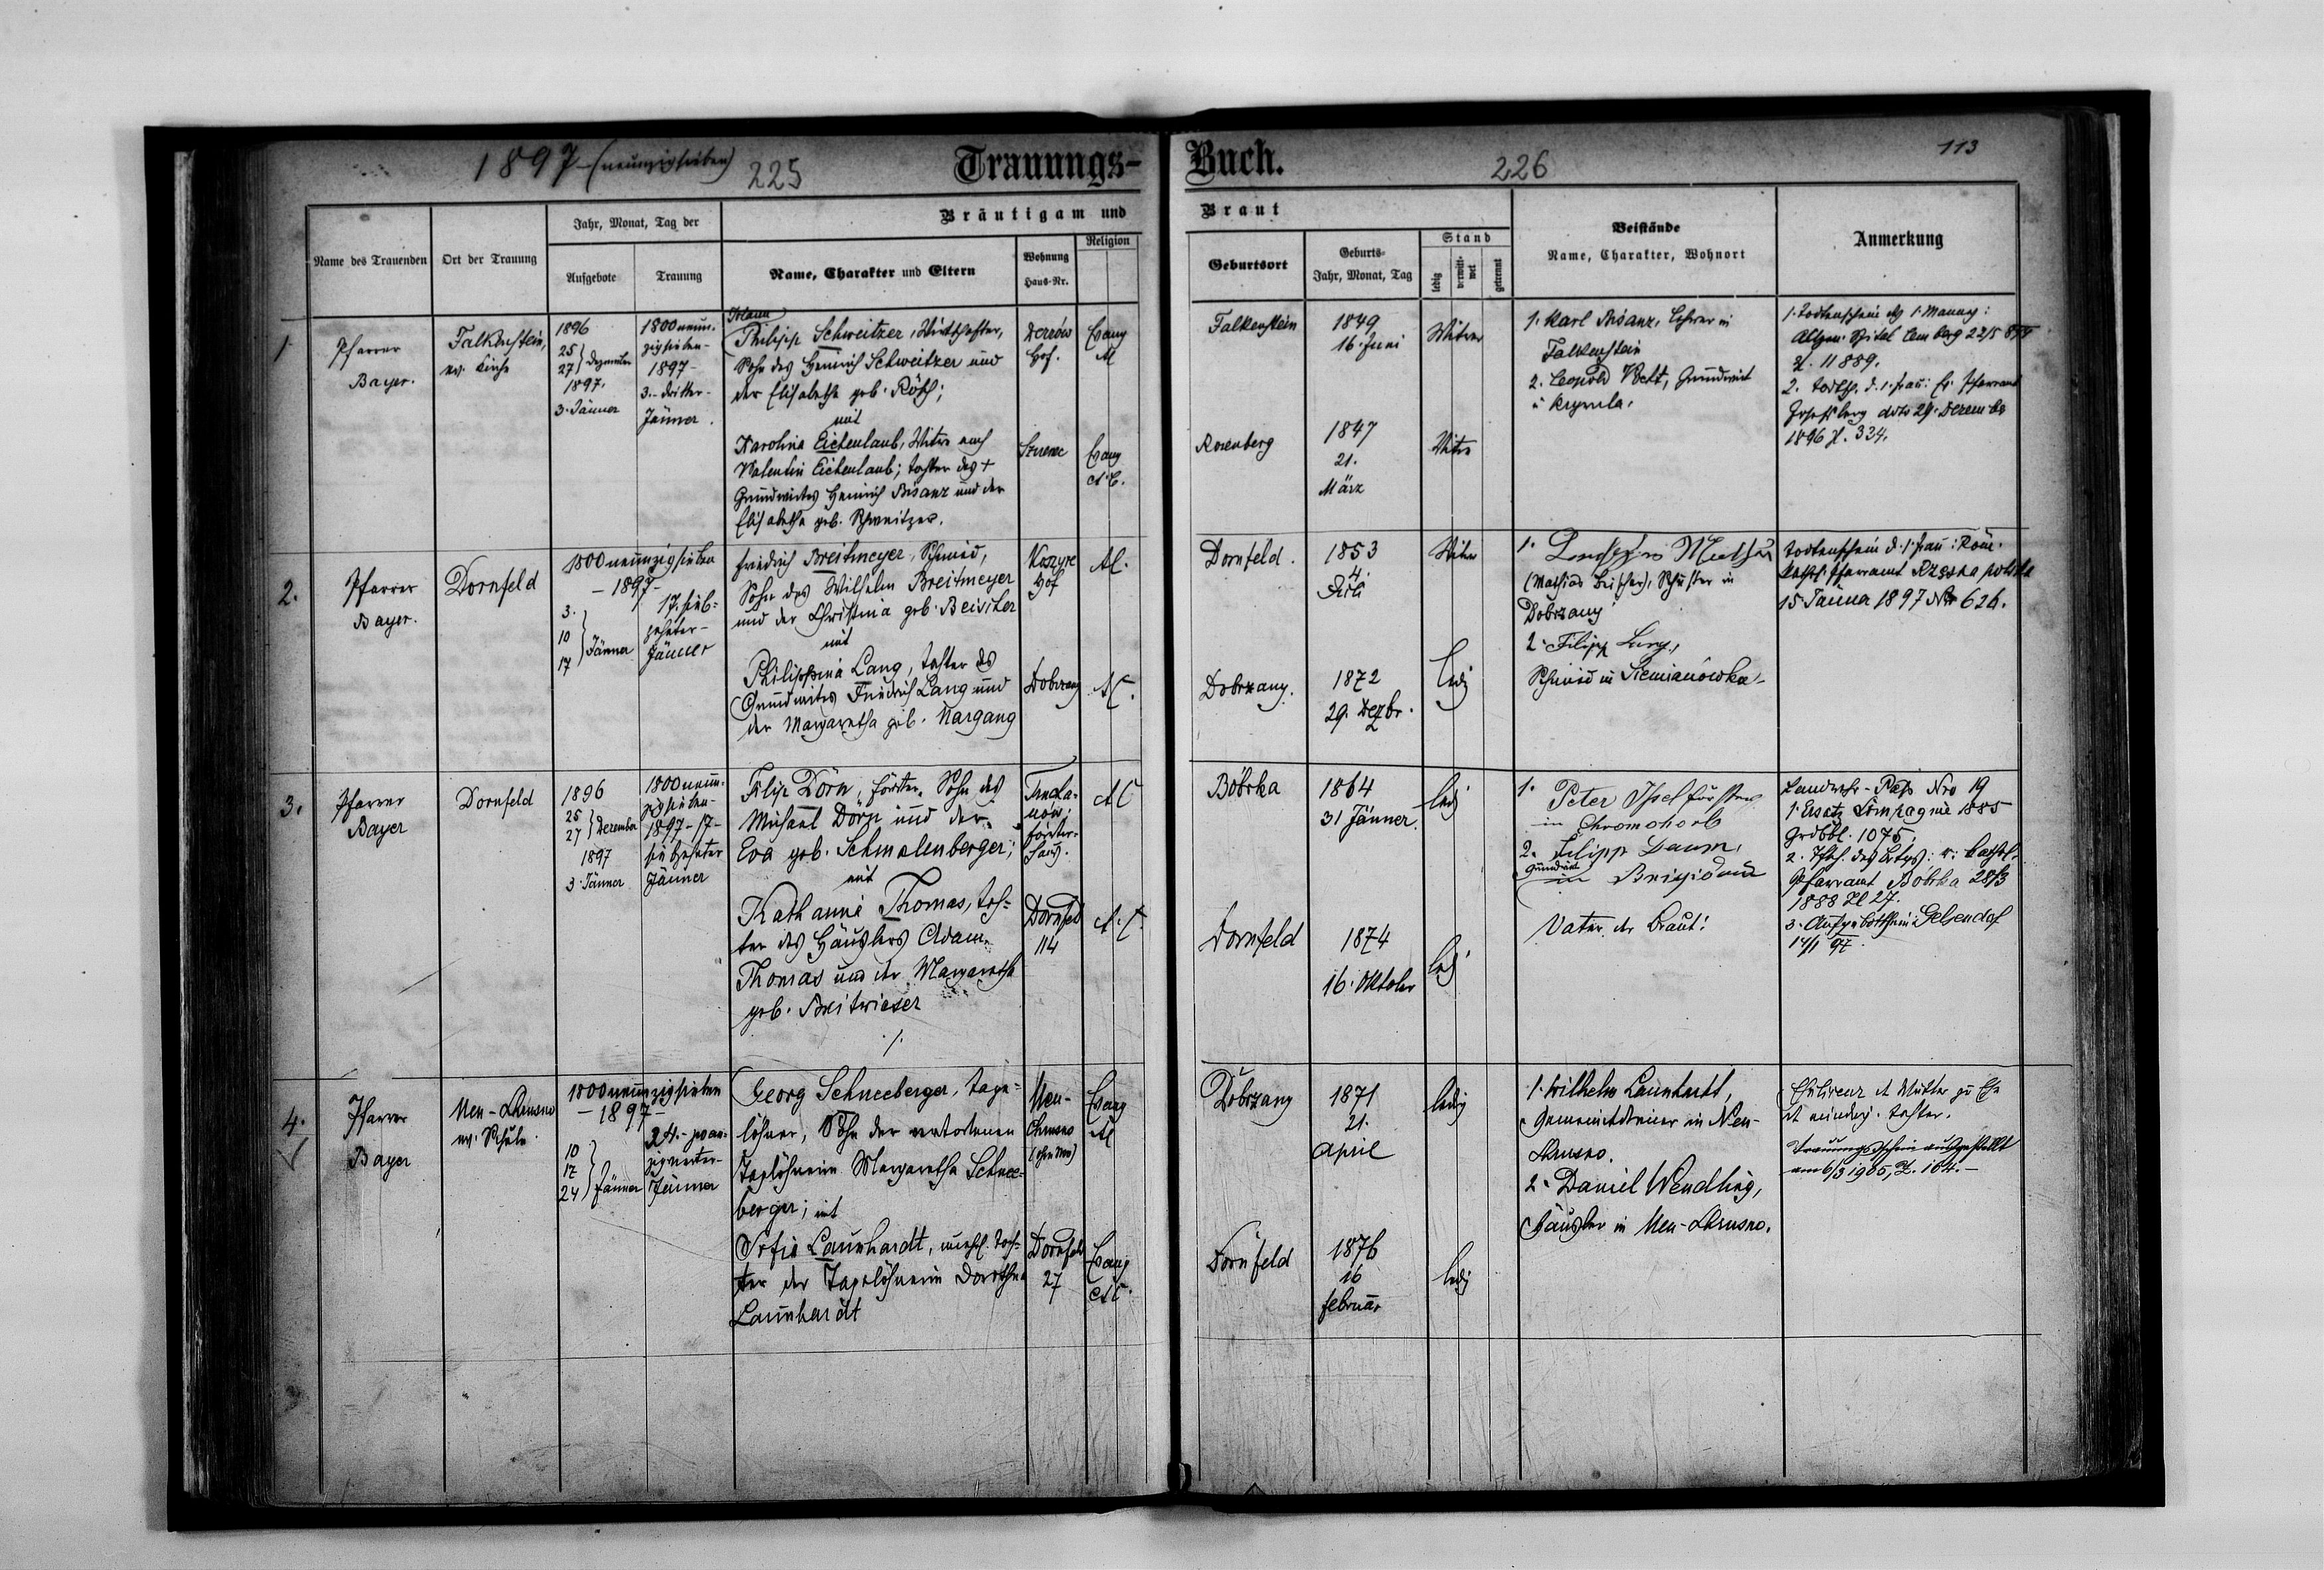 1897 (neunzigsieben)
225
Trauungs-
Name des Trauenden
Ort der Trauung
Jahr, Monat, Tag der
Aufgebote
Trauung
Bräutigam und
Name, Charakter und Eltern
Wohnung
Haus-Nr.
Religion
1
Pfarrer
Bayer.
Falkenstein,
ev. Kirche
1896
25
27 } Dezember
1897.
3. Jänner
1800 neun-
zigsieben-
1897-
3.- dritter-
Jänner.
Johann
Philipp Schweitzer, Wirtschafter,
Sohn des Heinrich Schweitzer und
der Elisabetha geb. Röth;
mit
Karolina Eichenlaub, Witwe nach
Valentin Eichenlaub; Tochter des +
Grundwirtes Heinrich Bisanz und der
Elisabetha geb. Schweitzer.
Hof.
Evang
Evang
A. C.
2.
Pfarrer
Bayer.
Dornfeld
1800 neunzigsieben
- 1897 -
3.
10
17 } Jänner
17. sieb-
zehnter-
Jänner
Friedrich Breitmeyer, Schmied,
Sohn des Wilhelm Breitmeyer
und der Christina geb.
mit
Philippina Lang, Tochter des
Grundwirtes Friedrich Lang und
der Margaretha geb. Nargang
Hof
Dobrzany
A.C.
3.
Pfarrer
Bayer
Dornfeld
1896
25
27 } Dezember
1897
3. Jänner
1800 neun-
zigsieben-
1897-17-
siebzehnter
Jänner
Filip Dörn, Förster, Sohn des
Michael Dörn und der
Eva geb. Schmalenberger;
mit
Katharina Thomas, Toch-
ter des Häuslers Adam
Thomas und der Margaretha
geb. Breitwieser
Förster-
haus.
Dornfeld
114
A C
A. C.
4.
Pfarrer
Bayer
Neu-Chrusno
ev. Schule.
1800 neunzigsieben
- 1897 -
10
17
24 } Jänner
24.- zwan-
zigvierter-
Jänner
Georg Schneeberger, Tage-
löhner, Sohn der verstorbenen
Taglöhnerin Margaretha Schnee-
berger; mit
Sofia Launhardt, unehl. Toch-
ter der Taglöhnerin Dorothea
Launhardt
Neu-
Chrusno
(ohne Nro)
Dornfeld
27
Evang
Evang
AC.
Buch.
226
113
Braut
Geburtsort
Geburts-
Jahr, Monat, Tag
Stand
ledig
verwitt-
wet
getrennt
Beistände
Name, Charakter, Wohnort
Anmerkung
Falkenstein
1849
16. Juni
Witwer
Rosenberg
1847
21.
März
Witwe
1. Karl Bisanz, Lehrer in
Falkenstein
2. Leopold Vocht, Grundwirt
1. Todtenschein des 1. Mannes:
Allgem. Spital Lemberg 22/5
Z. 11889.
2. Todtsch. d. 1. Frau: Ev. Pfarramt
Josefsberg dto 29. Dezember
1896 Z. 334.
Dornfeld.
1853
4.
Juli
Witwer
Dobrzany.
1872
29. Dezbr.
ledig
1.
Schuster in
Dobrzany
2. Filipp Lang,
Schmied in Siemianówka
Todtenschein d. 1. Frau: Röm.
kathol. Pfarramt Rzęsna polska
15 Jänner 1897 Nr 626.
Bóbrka
1864
31 Jänner.
ledig
Dornfeld
1874
16. Oktober
ledig
1.
Peter Förster
in Chromohorb
2. Filipp Daum,
Grundwirt
in Brigidau
Vater der Braut:
Landwehr-Pass Nro 19
1. Ersatz Kompagnie 1885
Grdbbl. 1075.
Pfarramt Bóbrka 28/3
1883 Zl 27.
3. Aufgebotschein: Gelsendorf
17/1 97.
Dobrzany
1871
21.
April
ledig
Dornfeld
1876
16
Februar
ledig
1. Wilhelm Launhardt,
Gemeindediener in Neu-
Chrusno.
2. Daniel Wendling,
Häusler in Neu-Chrusno.
Ehekonsens d. Mutter zur Ehe
d. minderj. Tochter.
Trauungsschein ausgestellt
am 6/3 1905, Z. 104.-